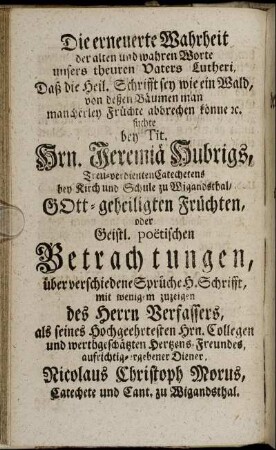 Die erneuerte Wahrheit
der alten und wahren Worte
unsers theuren Vaters Lutheri,
Daß die Heil. Schrifft sey wie ein Wald,
von deßen Bäumen man
mancherley Früchte abbrechen könne ꝛc.
suchte
bey Tit.
Hrn. Jeremiä Hubrigs,
Treu-verdienten Catechetens
bey Kirch und Schule zu Wigandsthal/
GOtt-geheiligten Früchten,
oder
Geistl. poëtischen
Betrachtungen,
über verschiedene Sprüche H. Schrifft,
mit wenigem zuzeigen
des Herrn Verfassers,
als seines Hochgeehrtesten Hrn. Collegen
und werthgeschätzten Hertzens-Freundes,
aufrichtig-ergebener Diener,
Nicolaus Christoph Morus,
Catechete und Cant. zu Wigandsthal.